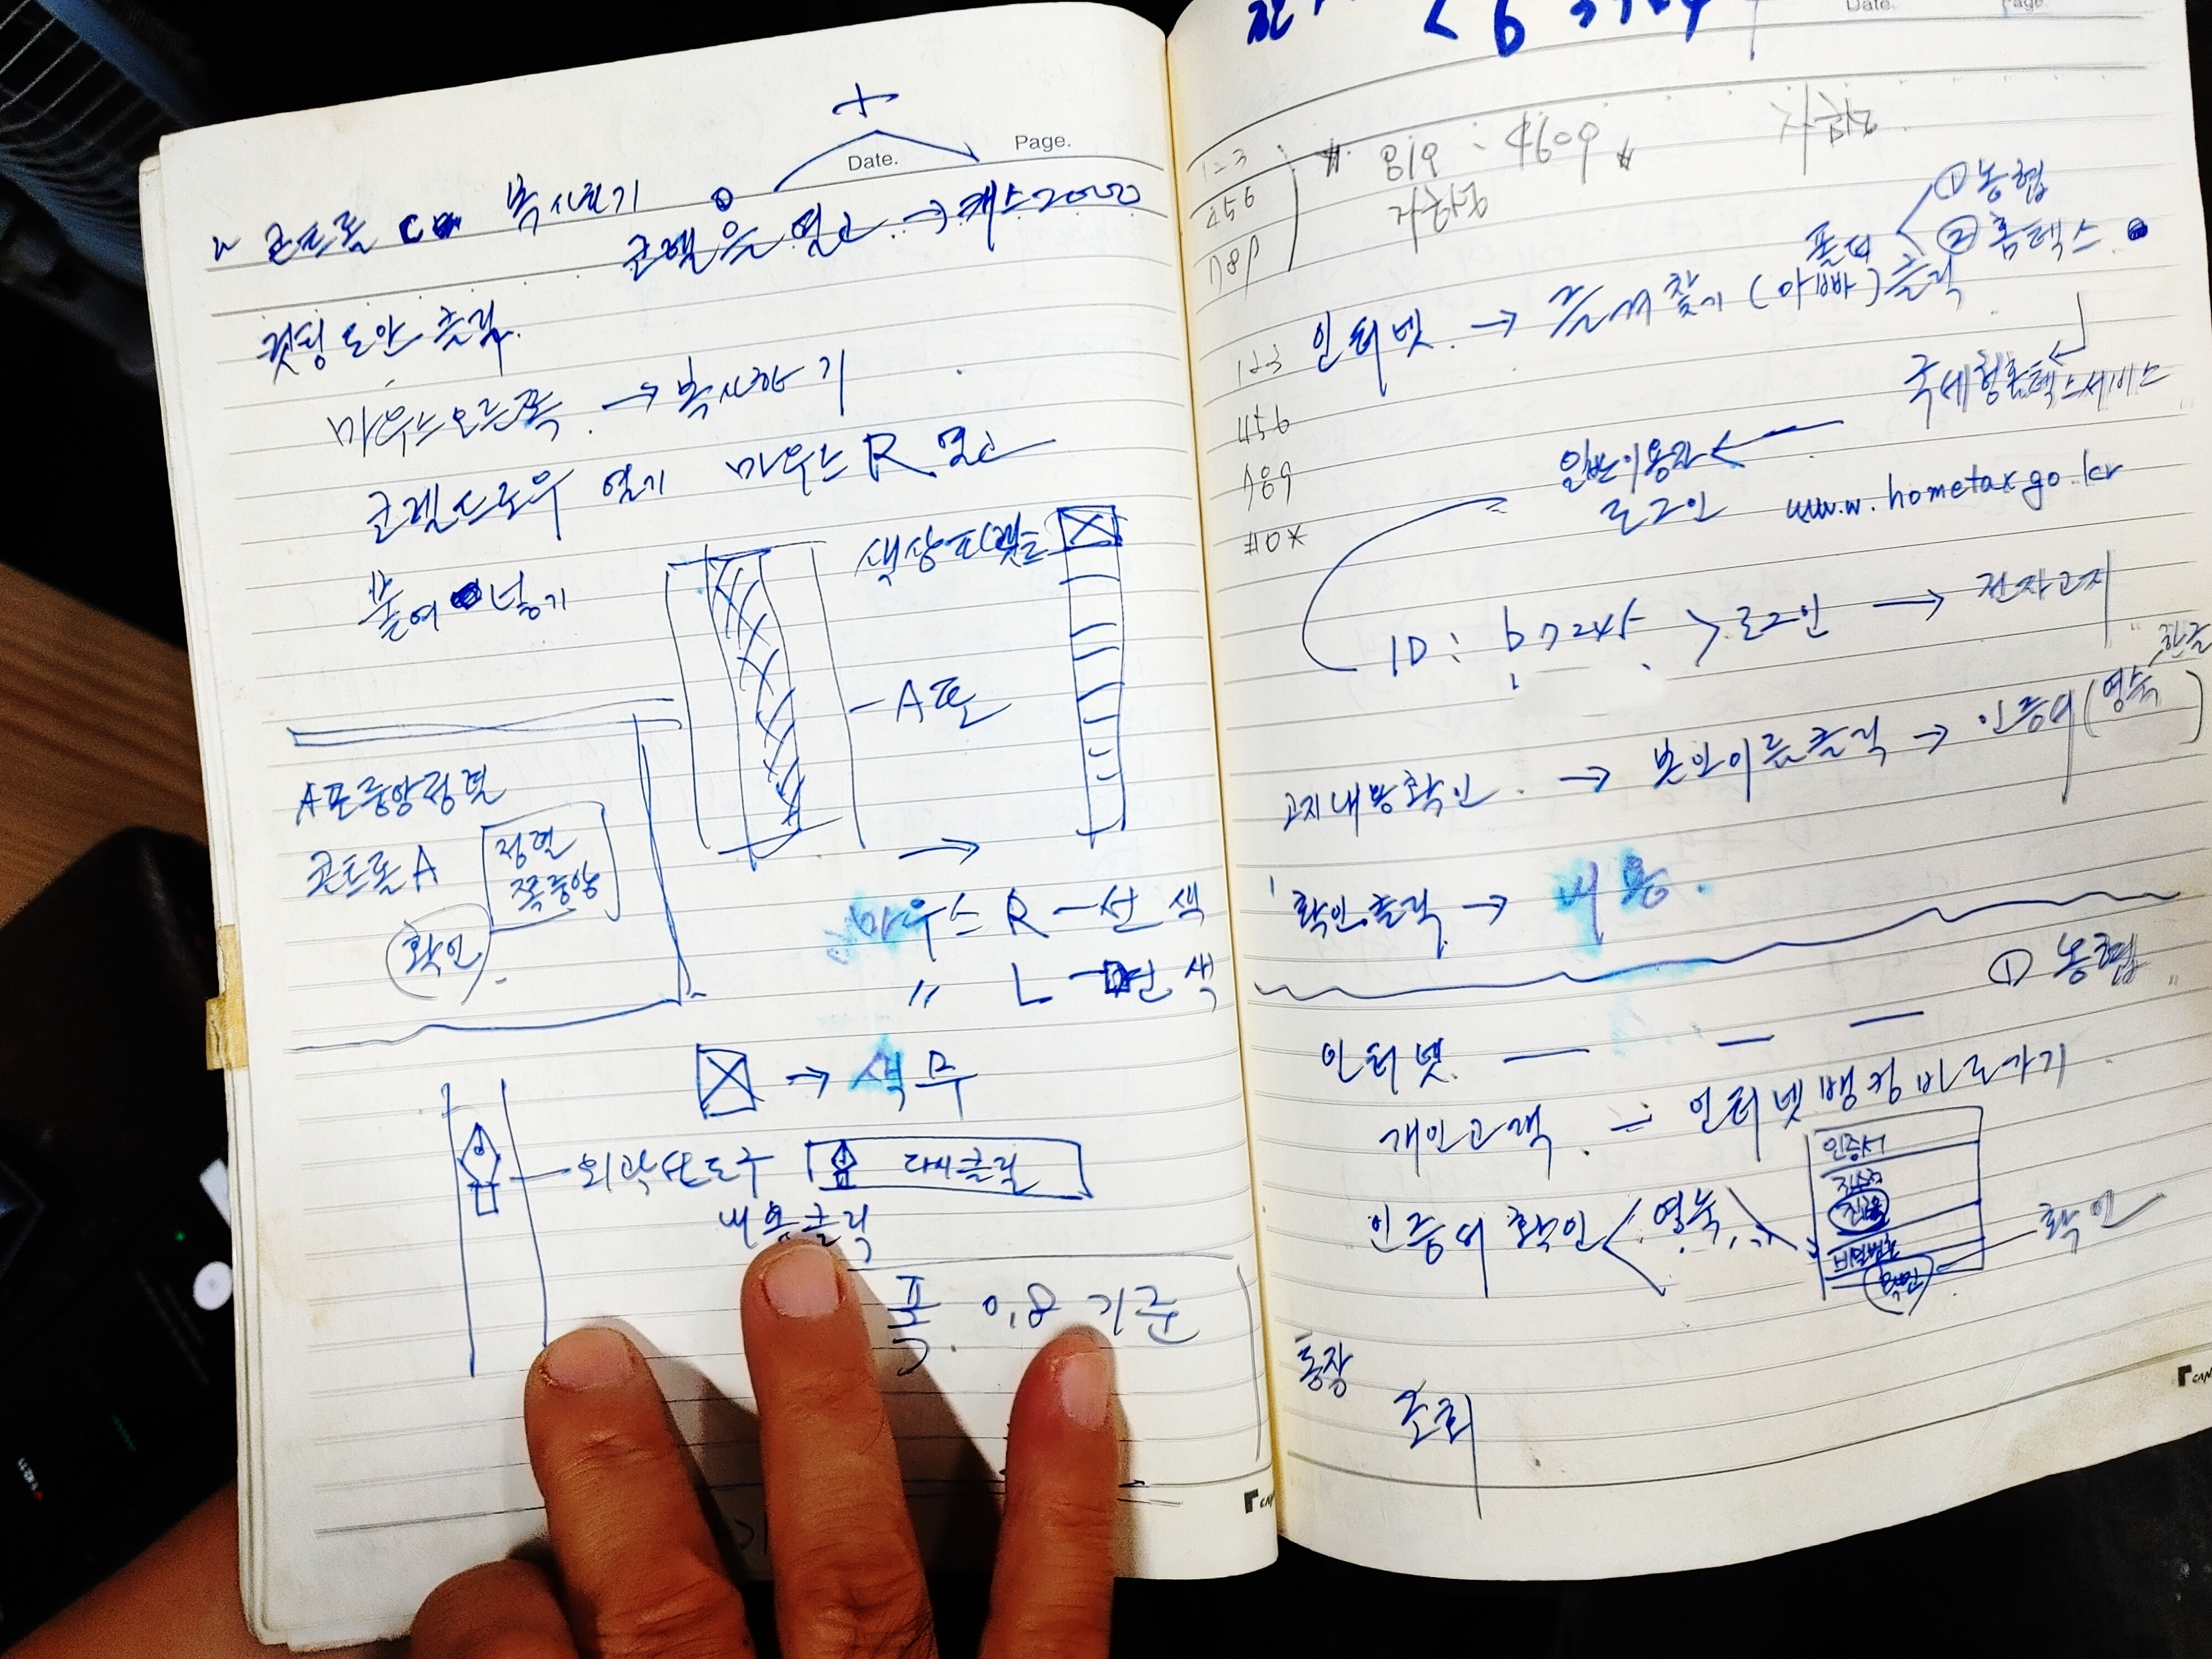 Date. Page.
+
콘트롤 C 복사하기
① 코렐을 열고 → 캐스2000
컷팅도안 클릭.
마우스오른쪽 → 복사하기
코렐드로우 열기 마우스 R 열고
붙여 넣기
색상
A포
A포중앙정렬
콘트롤 A
정렬
쪽중앙
확인
→
마우스 R - 선 색
〃 L - 면 색
→ 색 무
외곽선도구
다시클릭
내용클릭
폭. 0.8 기준
Date. Page.
819 - 4609
456
789
① 농협
폴더
② 홈텍스
123
인터넷 → 즐겨찾기 (아빠) 클릭
456
789
#0*
국세청홈텍스서비스
일반이용자
로그인
www.hometax.go.kr
ID :
로그인 → 전자고지
한글
고지내용확인 → 본인이름클릭 → 인증서 (영숙)
확인클릭 → 내용.
① 농협
인터넷
개인고객 = 인터넷뱅킹바로가기
인증서
인증서 확인 < 영숙
비밀번호
확인
확인
통장
조회